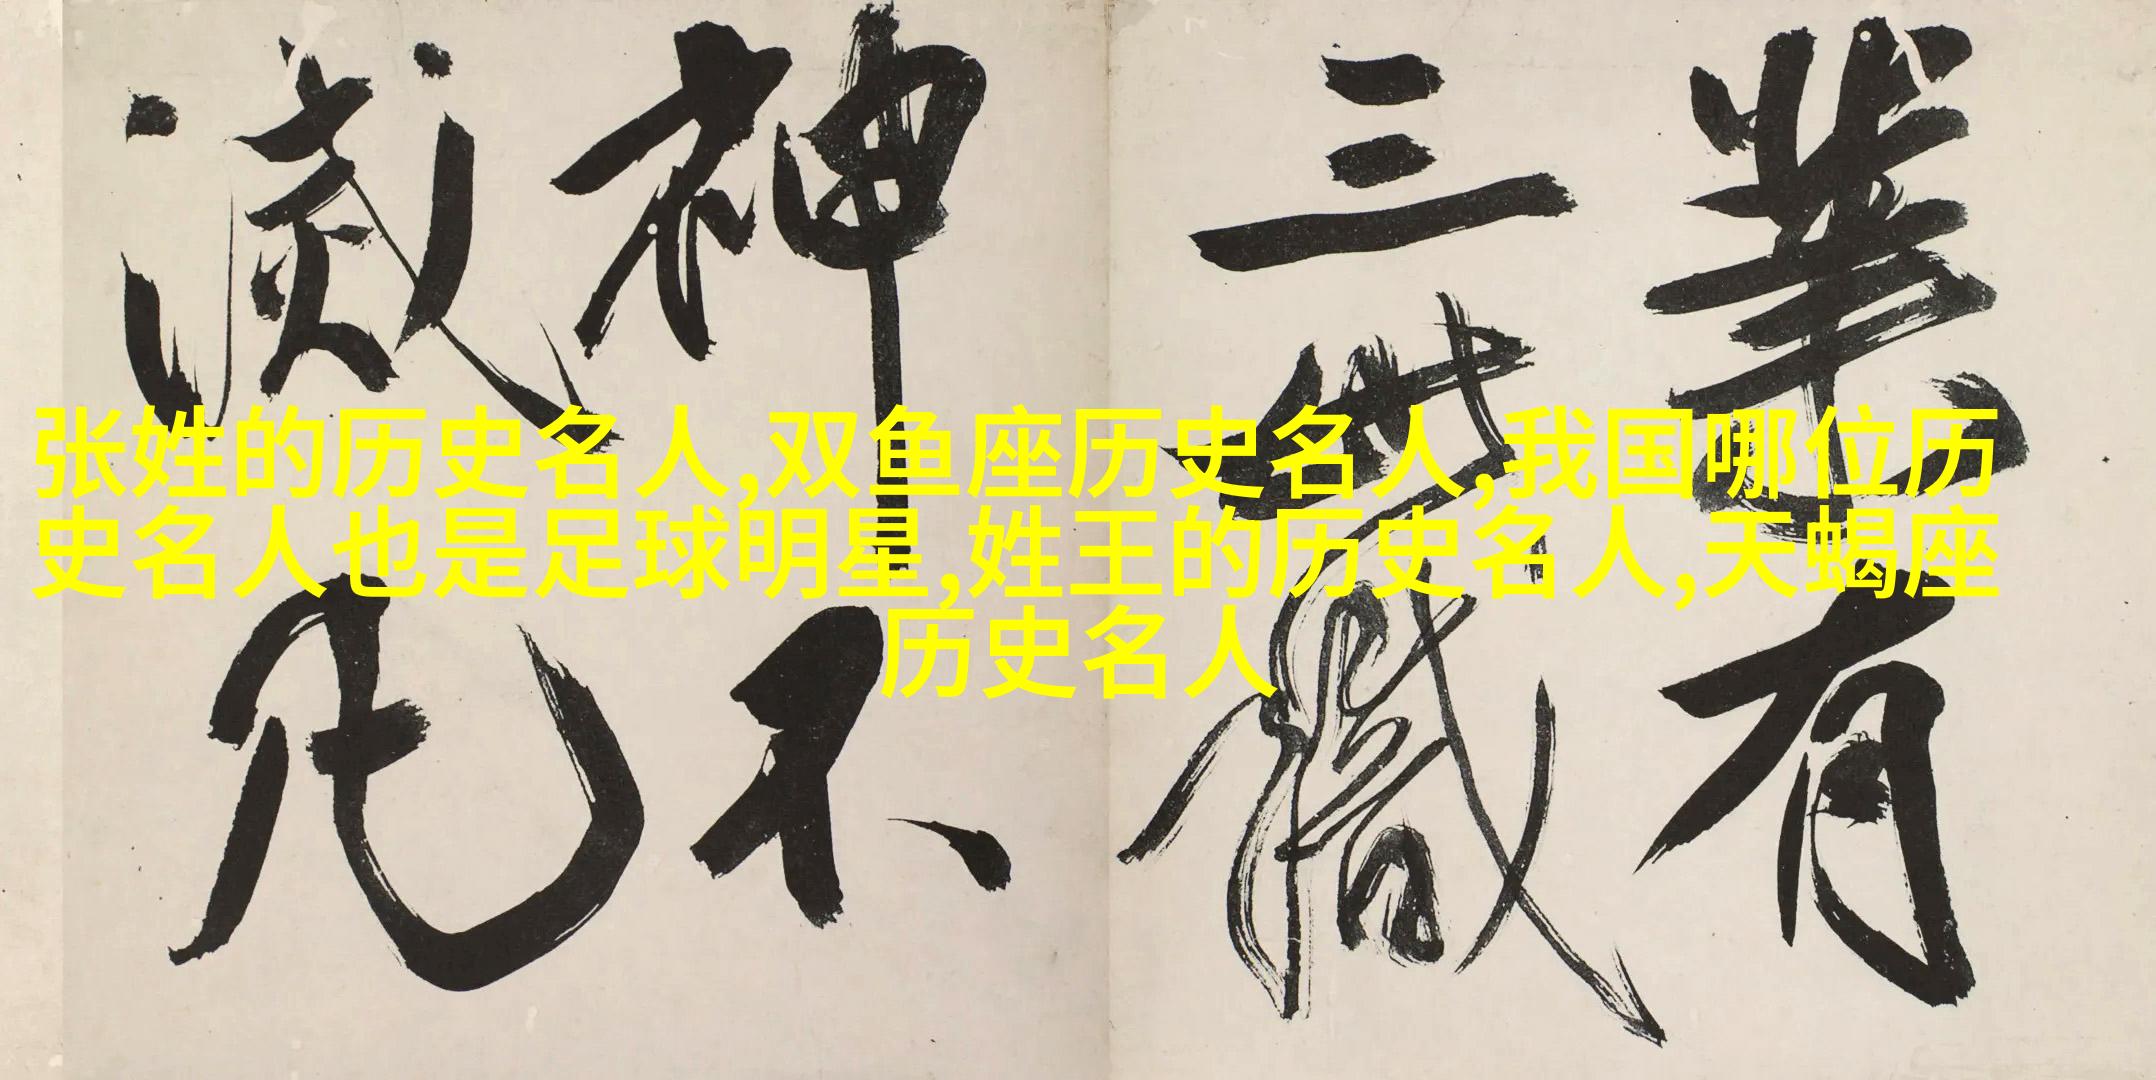 张姓的历史名人,双鱼座历史名人,我国哪位历
史名人也是足球明星,姓王的历史名人,天蝎座
历史名人
業有
三世識
神不
滅凡